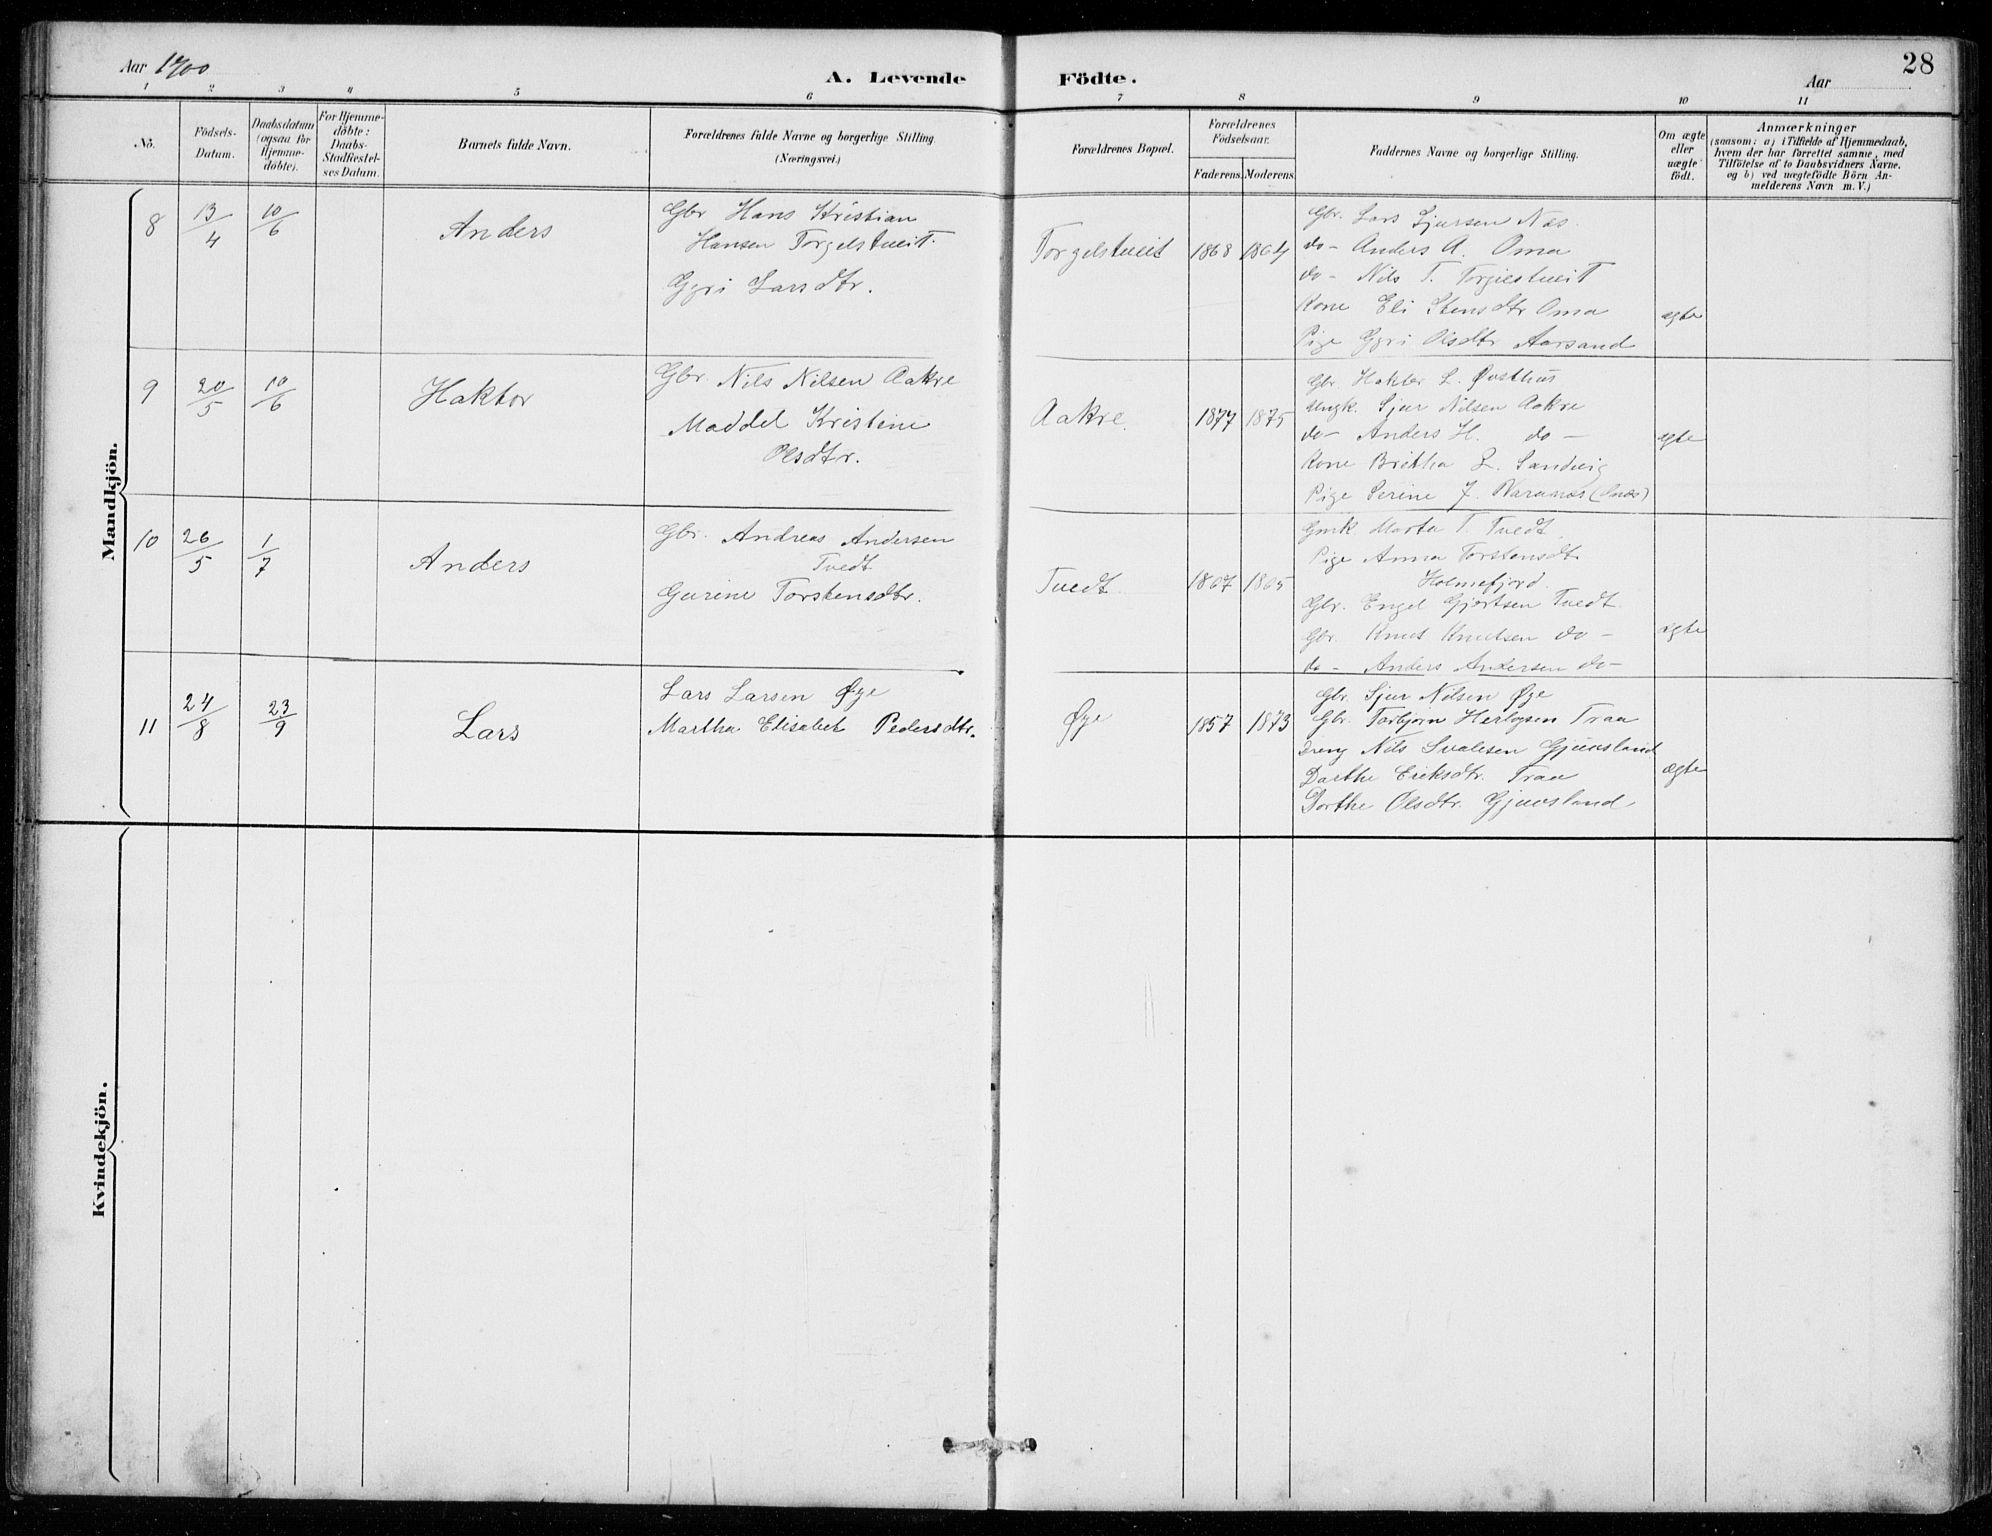 Aar 1900
A. Levende Födte.
Aar
28
1 2 3 4 5 6 7 8 9 10 11
No.
Födsels-Datum.
Daabsdatum (ogsaa for Hjemmedöbte).
For Hjemmedöbte: Daabs-Stadfæstelses Datum.
Barnets fulde Navn.
Forældrenes fulde Navne og borgerlige Stilling. (Næringsvei.)
Forældrenes Bopæl.
Forældrenes Födselsaar.
Faderens. Moderens.
Faddernes Navne og borgerlige Stilling.
Om ægte eller uægte födt.
Anmærkninger
(saasom: a) i Tilfælde af Hjemmedaab, hvem der har forrettet samme, med Tilföielse af to Daabsvidners Navne, og b) ved uægtefödte Börn Anmelderens Navn m. V.)
Mandkjön.
8 13/4 10/6 Anders
Gbr Hans Kristian
Hansen Torgelstueit.
Gyri Larsdtr.
Torgelstueit 1868 1864
Gbr. Lars Sjursen Næs.
do- Anders A. Oma
do- Nils T. Torgelstueit
Kone Eli Stensdtr Oma
Pige Gyri Olsdtr Aarsand
ægte
9 20/5 10/6 Haktor
Gbr. Nils Nilsen Aakre
Maddel Kristine
Olsdtr.
Aakre. 1877 1875
Gbr. Haktor L. Østhus
Ungk. Sjur Nilsen Aakre
do- Anders H. do-
Kone Britha L. Sandvig
Pige Serine J.
egte
10 26/5 1/7 Anders
Gbr. Andreas Andersen
Tvedt
Gurine Torstensdtr.
Tvedt 1867 1865
Gmk Marta T. Tvedt.
Pige Anna Torstensdtr
Holmefjord.
Gbr. Engel Gjertsen Tvedt
Gbr. Knut Knutsen do-
do- Anders Andersen do-
ægte
11 24/8 23/9 Lars
Lars Larsen Øye
Martha Elisabet Pedersdtr.
Øye 1857 1873
Gbr. Sjur Nilsen Øye
Gbr. Torbjørn Herlogsen Traa
Dreng Nils Gjuvsland
Dorthe Eriksdtr. Traa
Dorthe Olsdtr. Gjuvsland.
ægte
Kvindekjön.